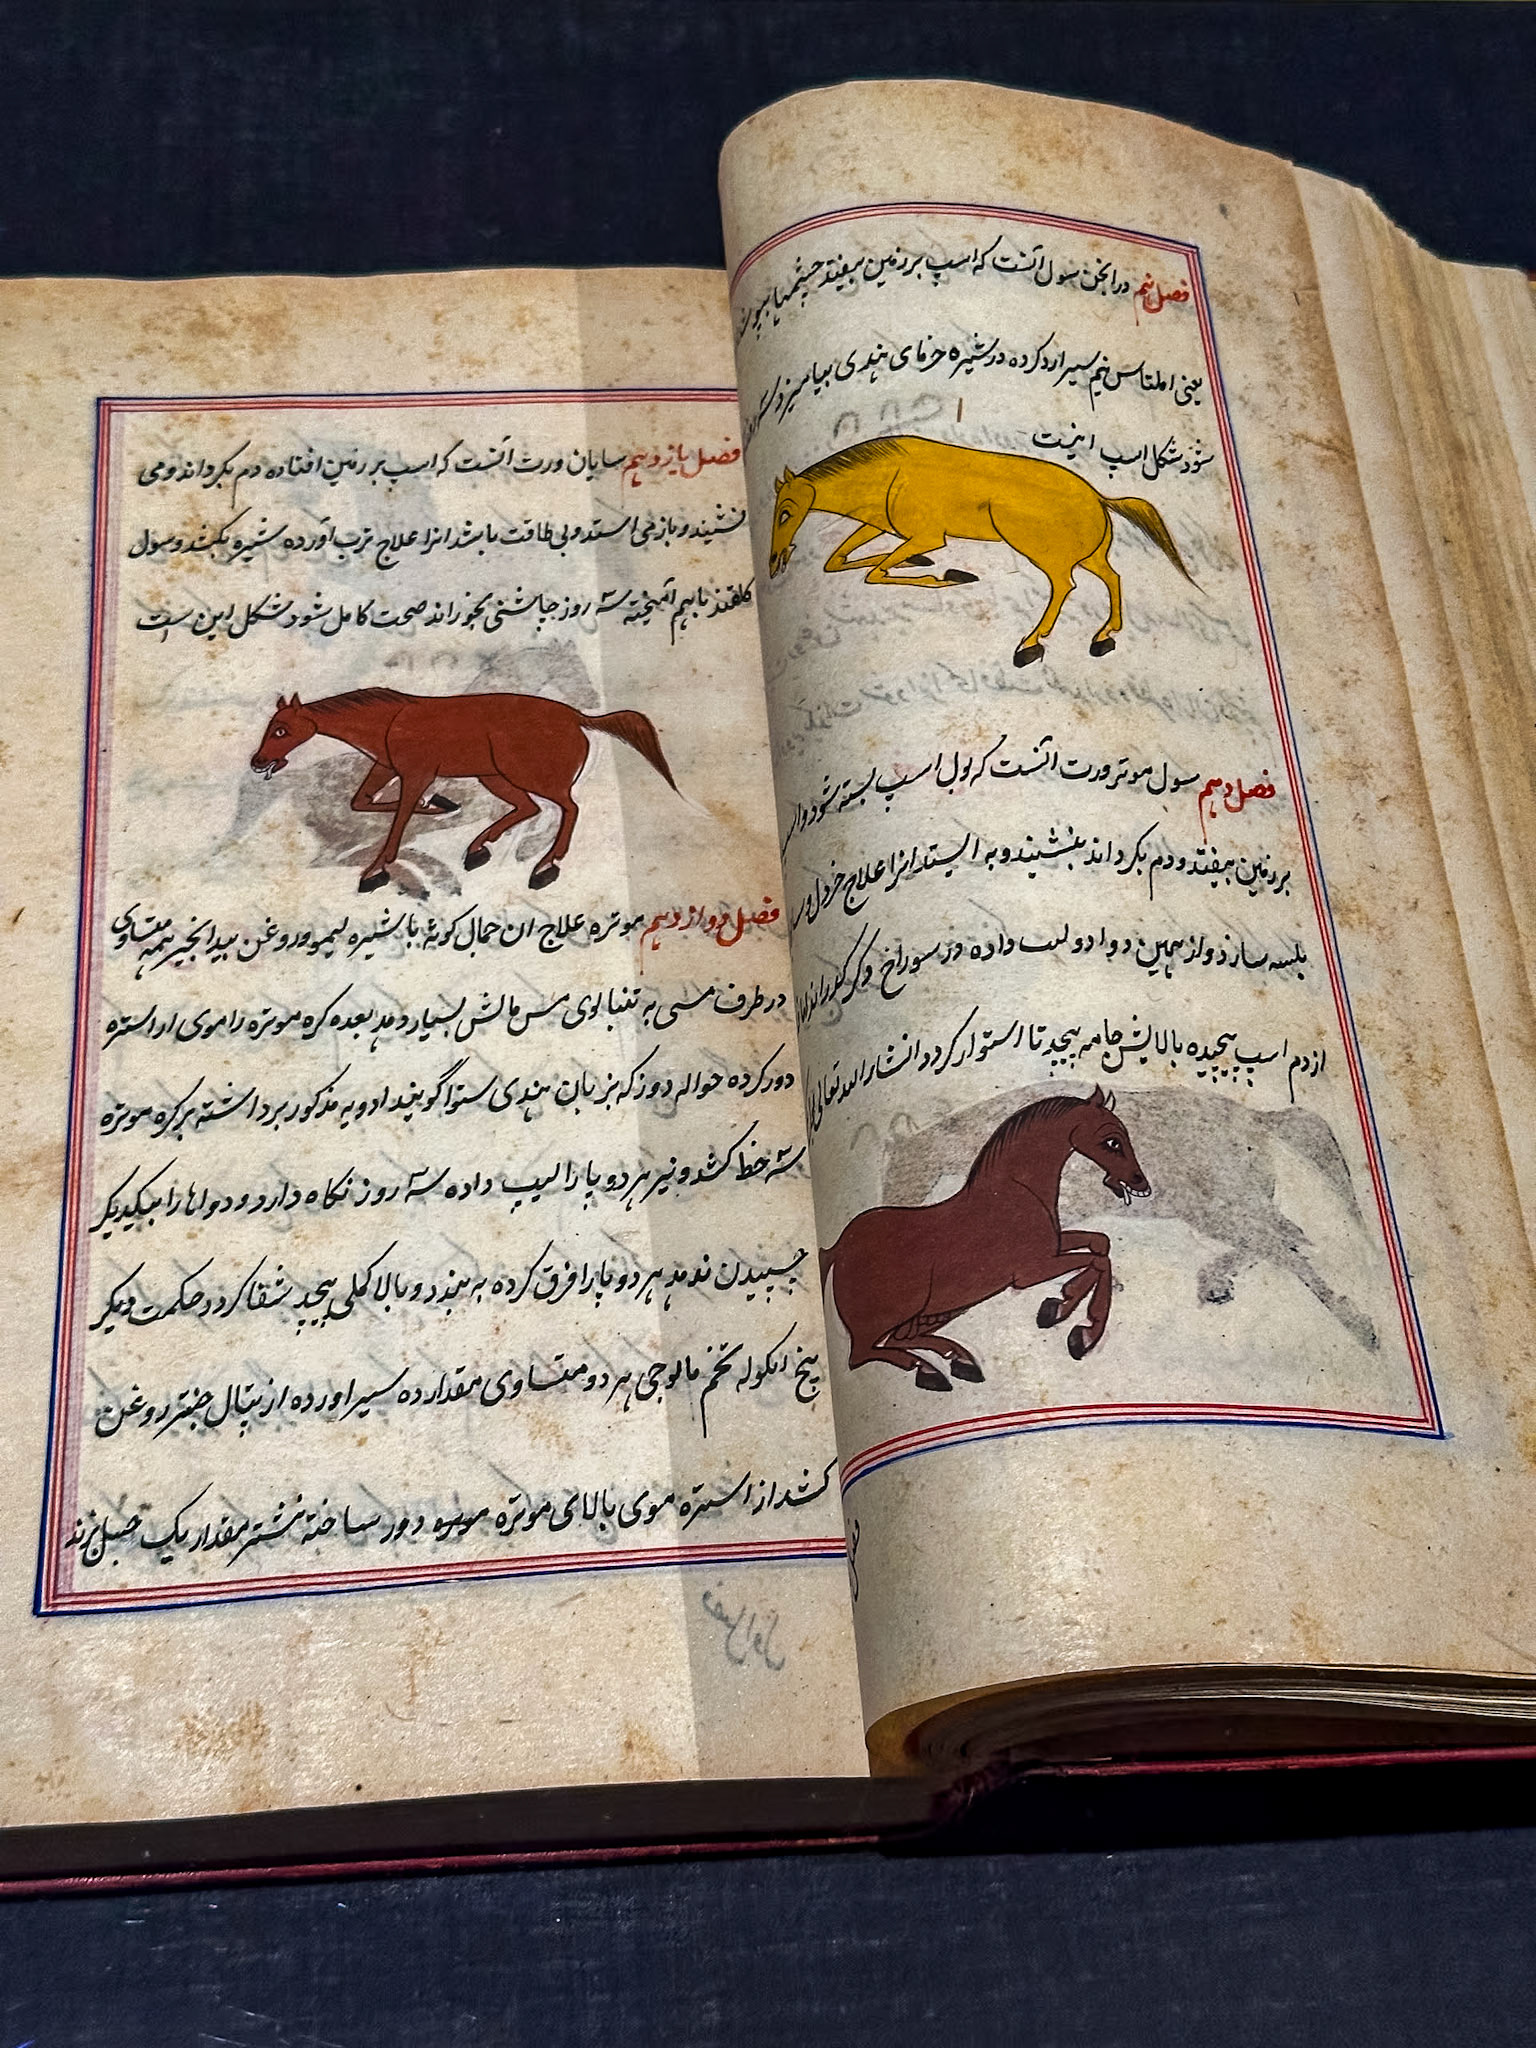 فصل نهم در انجن سول آنست که اسپ بر زمین بیفتد چشمها بپوشد
یعنی املتاس نیم سیر ارد کرده در شیره خرفای هندی بیامیزد سه
شود شکل اسپ اینست
فصل دهم سول موتر ورت آنست که بول اسپ بسته شود و
بر زمین بیفتد و دم بگرداند بنشیند و به ایستد انرا علاج خردل و
بلسه سازد و از همین دوا دو لت داده در سوراخ ذکر گذراند
از دم اسپ پیچیده بالایش جامه پیچد تا استوار گردد انشاء الله تعالی
فصل یازدهم سایان ورت آنست که اسپ بر زمین افتاده دم بگرداند و می
نشیند و باز می استد و بی طاقت باشد انرا علاج ترب آورده شیره بکشد و سول
کلقند باهم آمیخته سه روز چاشنی بخوراند صحت کامل شود شکل این است
فصل دوازدهم موتره علاج ان حمال کوته با شیره لیمو و روغن بیدانجیر همه مساوی
در طرف مسی به تفنالوی مس مالش بسیار دهد بعده کره موتره را موی از استره
دور کرده حواله دوز که بزبان هندی ستوا گویند ادویه مذکور برداشته بر کره موتره
سه خط کشد و نیز هر دو پا را لیپ داده سه روز نگاه دارد و دواها را بیکدیگر
چسپیدن ندهد هر دو پا را فرق کرده به بندد و بالا کملی پیچد شفا گردد حکمت دیگر
بیخ انکوله تخم مالوجی هر دو متساوی مقدار ده سیر اورده از پتال جنتر روغن
کشد از استره موی بالای موتره دور ساخته نشتر مقدار یک
فصل اول